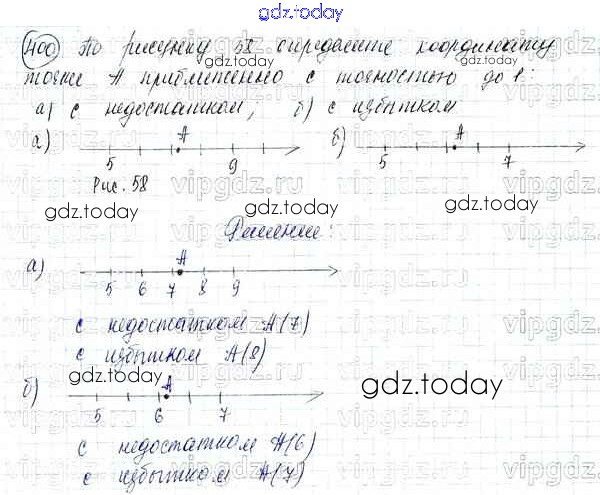 gdz.today
400 По рисунку 58 определите координату
точки А приближенно с точностью до 1:
а) с недостатком; б) с избытком
а) А 5 9 б) А 5 7
Рис. 58
vipgdz.ru
gdz.today gdz.today
Решение:
а) А
5 6 7 8 9
с недостатком А(7)
с избытком А(8)
gdz.today
б) А
5 6 7
gdz.today
с недостатком А(6)
с избытком А(7)